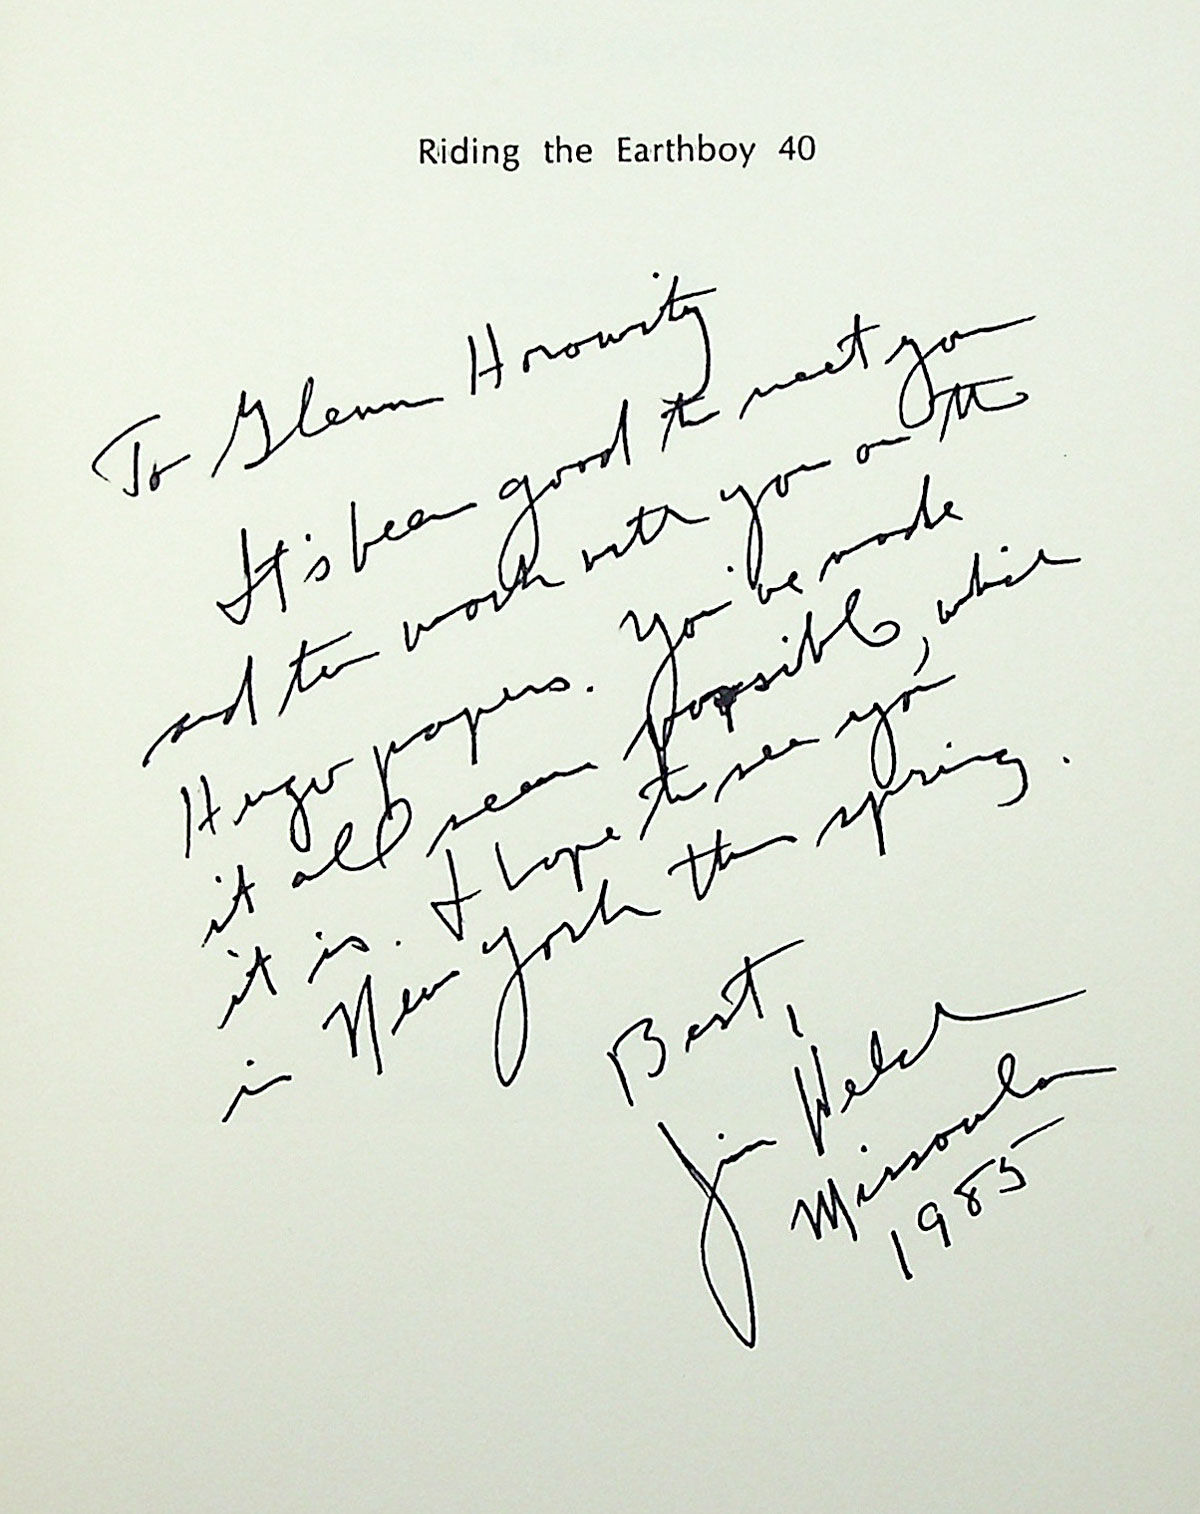 Riding the Earthboy 40
To Glenn Horowitz
It's been good to meet you
and to work with you on the
Hugo papers. You've made
it all seem possible, which
it is. I hope to see you
in New York this spring.
Best,
Jim Welch
Missoula
1985